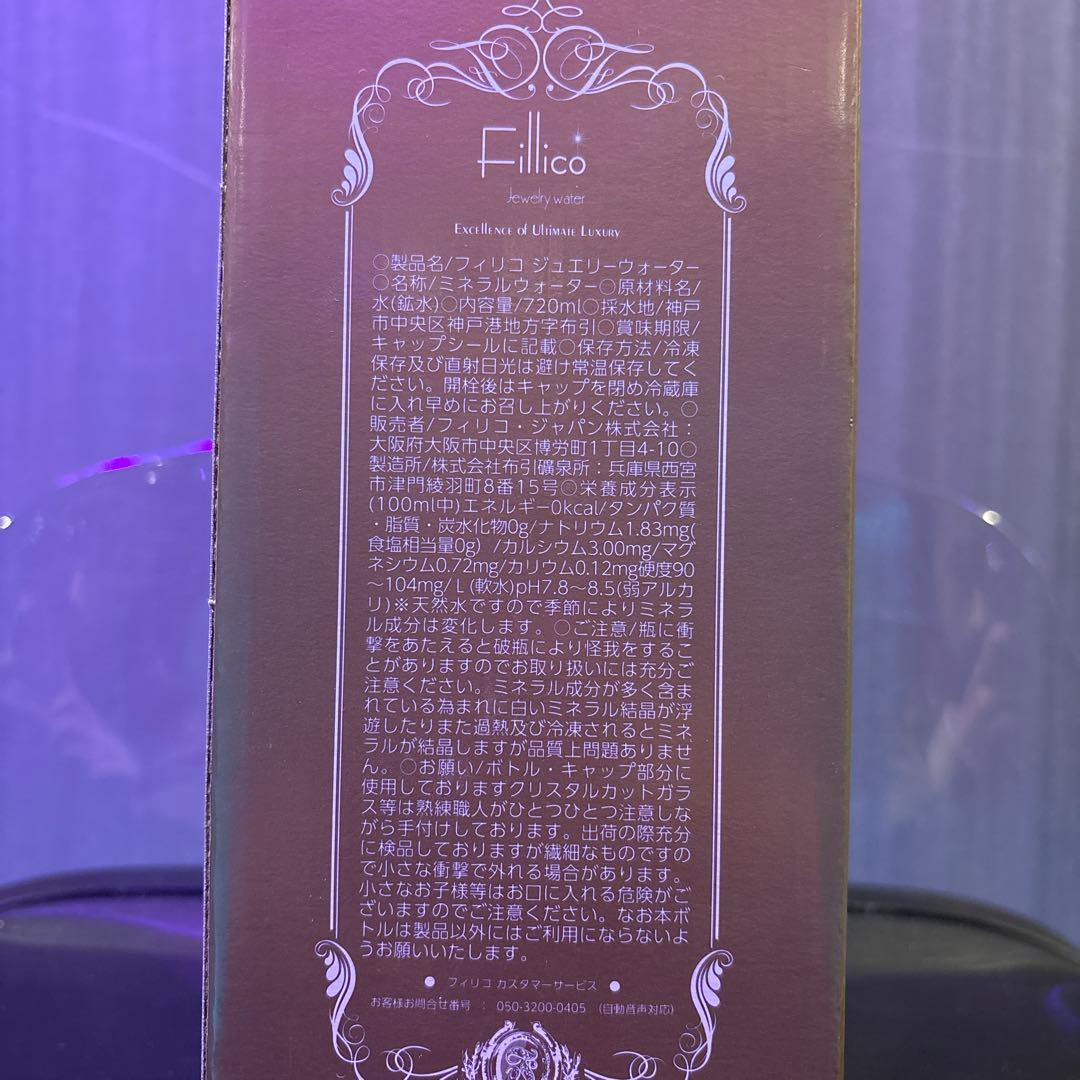 Fillico
Jewelry water
Excellence of Ultimate Luxury
○製品名/フィリコ ジュエリーウォーター
○名称/ミネラルウォーター○原材料名/
水(鉱水)○内容量/720ml○採水地/神戸
市中央区神戸港地方字布引○賞味期限/
キャップシールに記載○保存方法/冷凍
保存及び直射日光は避け常温保存してく
ださい。開栓後はキャップを閉め冷蔵庫
に入れ早めにお召し上がりください。○
販売者/フィリコ・ジャパン株式会社：
大阪府大阪市中央区博労町1丁目4-10○
製造所/株式会社布引礦泉所：兵庫県西宮
市津門綾羽町8番15号○栄養成分表示
(100ml中)エネルギー0kcal/タンパク質
・脂質・炭水化物0g/ナトリウム1.83mg(
食塩相当量0g) /カルシウム3.00mg/マグ
ネシウム0.72mg/カリウム0.12mg硬度90
～104mg/L(軟水)pH7.8～8.5(弱アルカ
リ)※天然水ですので季節によりミネラ
ル成分は変化します。○ご注意/瓶に衝
撃をあたえると破瓶により怪我をするこ
とがありますのでお取り扱いには充分ご
注意ください。ミネラル成分が多く含ま
れている為まれに白いミネラル結晶が浮
遊したりまた過熱及び冷凍されるとミネ
ラルが結晶しますが品質上問題ありませ
ん。○お願い/ボトル・キャップ部分に
使用しておりますクリスタルカットガラ
ス等は熟練職人がひとつひとつ注意しな
がら手付けしております。出荷の際充分
に検品しておりますが繊細なものですの
で小さな衝撃で外れる場合があります。
小さなお子様等はお口に入れる危険がご
ざいますのでご注意ください。なお本ボ
トルは製品以外にはご利用にならないよ
うお願いいたします。
● フィリコ カスタマーサービス ●
お客様お問合せ番号 ： 050-3200-0405 (自動音声対応)